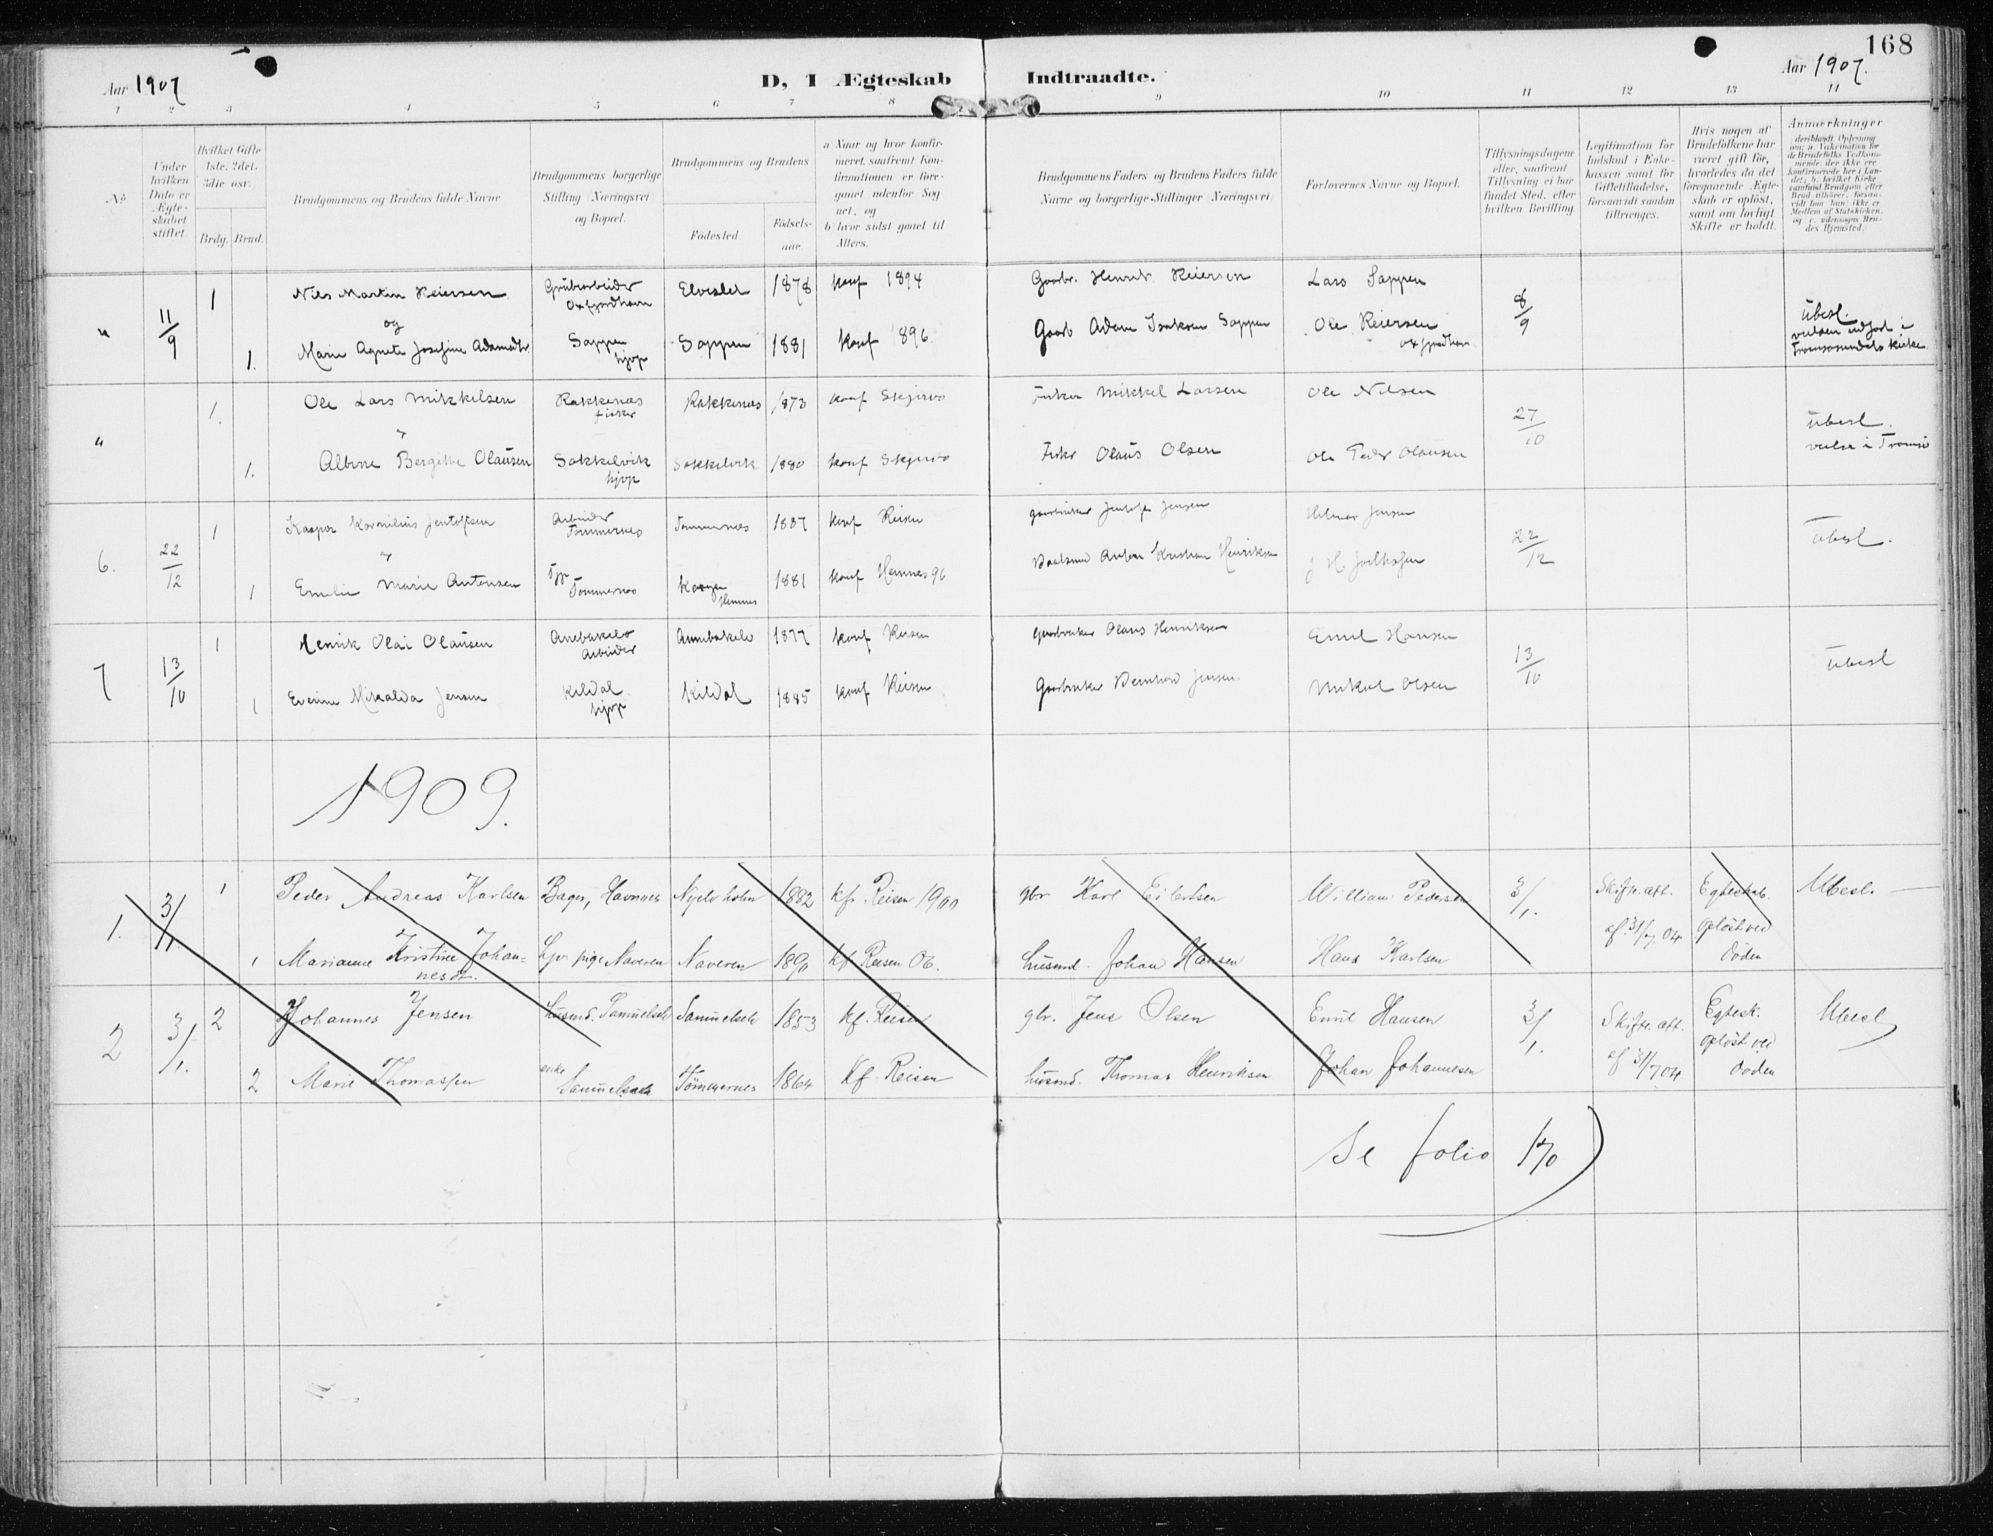 168
Aar 1907
D, I Ægteskab
Indtraadte.
Aar 1907.
1 2 3 4 5 6 7 8 9 10 11 12 13 14
No.
Under hvilken Dato er Ægteskabet stiftet
Hvilket Gifte 1ste, 2det, 3die osv.
Brdg. Brud.
Brudgommens og Brudens fulde Navne
Brudgommens borgerlige Stilling Næringsvei og Bopæl.
Brudgommens og Brudens
Fødested.
Fødselsaar.
a Naar og hvor konfirmeret, saafremt Konfirmationen er foregaaet udenfor Sognet, og
b hvor sidst gaaet til Alters.
Brudgommens Faders og Brudens Faders fulde Navne og borgerlige Stillinger Næringsvei.
Forlovernes Navne og Bopæl.
Tillysningsdagene eller, saafremt Tillysning ei har fundet Sted, efter hvilken Bevilling
Legitimation for Indskud i Enkekassen samt for Giftetilladelse, forsaavidt saadan tiltrænges.
Hvis nogen af Brudefolkene har været gift før, hvorledes da det foregaaende Ægteskab er opløst, samt om lovligt Skifte er holdt.
Anmærkninger
" 11/9 1 Nils Martin Reiersen Grubearbeider Oxfjordhavn Elveslet 1878 konf 1894 Gaarbr. Henrik Reiersen Lars Sappen 8/9
og
1. Marie Agnete Josefine Adamsdtr Sappen hjvp Sappen 1881 konf 1896 Gaarb Adam Isaksen Sappen Ole Reiersen Oxfjordhavn
Ubesl. vielsen udført i Tromsøsundets kirke
" 1. Ole Lars Mikkelsen Rakkenæs fisker Rakkenæs 1873 konf Skjervø Fisker Mikkel Larsen Ole Nilsen 27/10
1. Albine Bergitte Olausen Sakkelvik hjvp Sakkelvik 1880 konf Skjervø Fisker Olaus Olsen Ole Peder Olausen
Ubesl. vielse i Tromsø
6. 22/12 1 Kaspar Kornilius Jentoftsen Arbeider Tømmernes Tømmernes 1887 konf Reisen gaardbruker Jentoft Jensen Hilmar Jensen 22/12 Ubesl.
1 Emelie Marie Antonsen Tømmernes Hemnes 1881 konf Hemnes 96 Anton Kristian Henriksen
7 13/10 1 Henrik Olai Olausen Anebakele Arbeider Annebakele 1877 konf Reisen Gaardbruker Olaus Henriksen Emil Hansen 13/10 Ubesl
1 Everine Mikalda Jensen Kildal hjvp Kildal 1885 konf Reisen Gaardbruker Bernhard Jensen Mikal Olsen
1909.
1. 3/1. 1 Peder Andreas Karlsen Bager, Havnnes 1882 kf. Reisen 1900 gbr Karl Eilertsen William Pedersen 3/1. Skifte.att. Egteskab. Ubesl.
1 Marianne Kristine Johannesdr. hjv. pige Naveren Naveren 1890 kf Reisen 06. husmd. Johan Hansen Hans Karlsen af 31/7 04 opløst ved Døden
2 3/1. 2 Johannes Jensen husmd. Samuelsele Samuelsele 1853 kf. Reisen gbr. Jens Olsen Emil Hansen 3/1. Skifte. att. Egtesk. Ubesl
2 Marie Thomassen enke Samuelsele Tømmernes 1864 kf. Reisen husmd. Thomas Henriksen Johan Johannesen af 31/7 04. opløst ved Døden
Se folio 170)